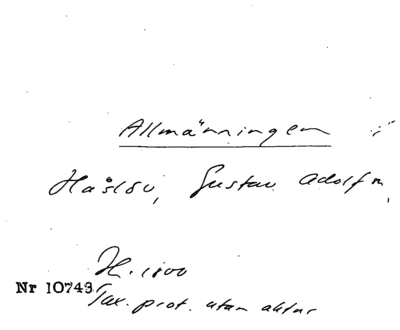 Allmänningen i
Håslöv, Gustav Adolf m,
H. 1800
Nr 10749
Tax. prot. utan aktnr